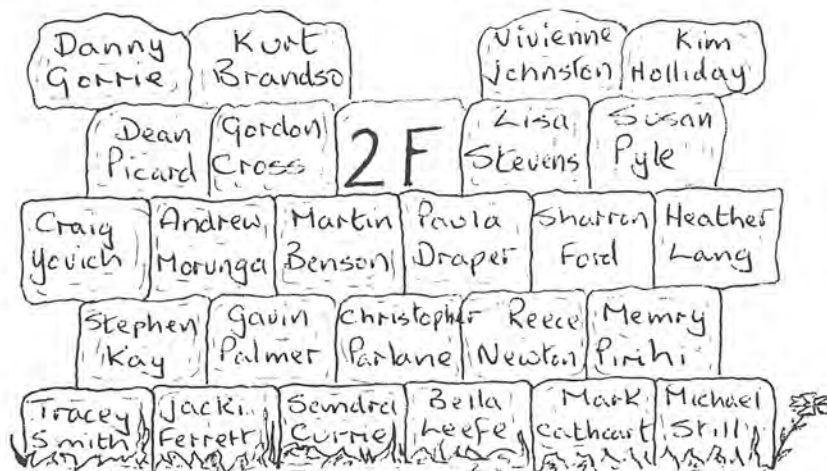 Danny Gorrie
Kurt Brandso
Vivienne Johnston
Kim Holliday
Dean Picard
Gordon Cross
2F
Lisa Stevens
Susan Pyle
Craig Yovich
Andrew Morunga
Martin Benson
Paula Draper
Sharron Ford
Heather Lang
Stephen Kay
Gavin Palmer
Christopher Parlane
Reece Newton
Memry Pirihi
Tracey Smith
Jacki Ferrett
Sandra Currie
Bella Leefe
Mark Cathcart
Michael Still